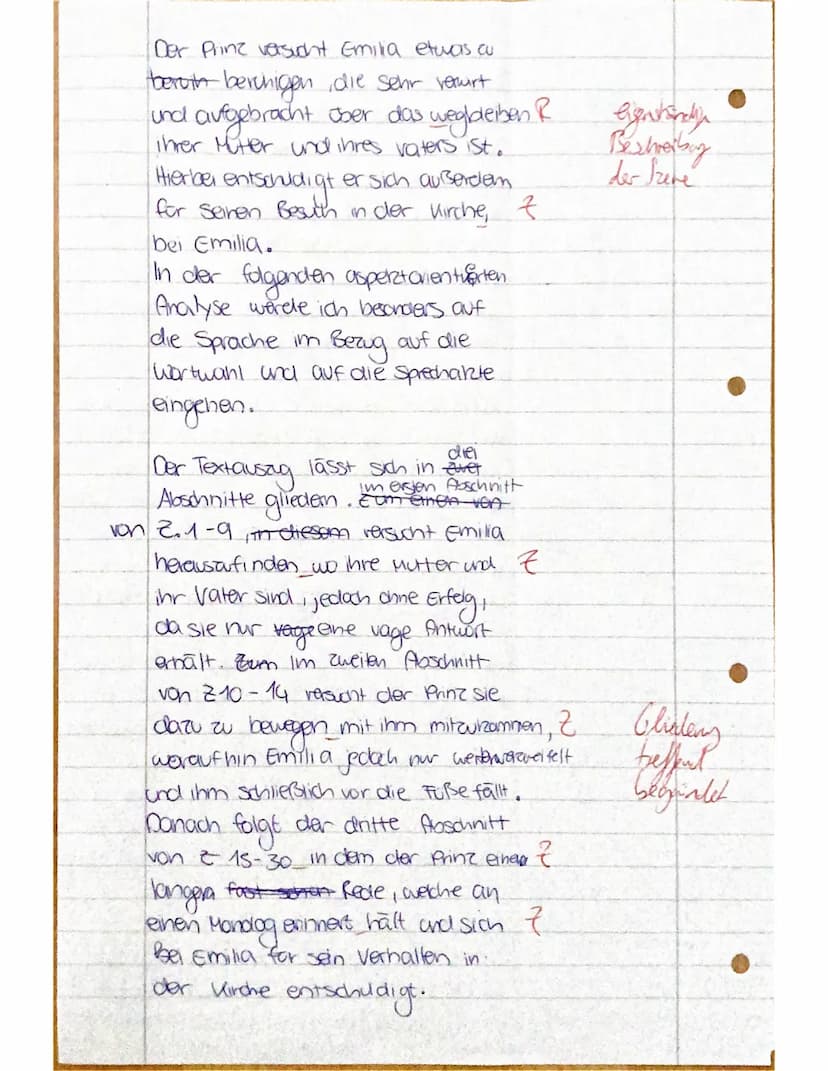 Der Prinz versucht Emilia etwas zu
beruh beruhigen, die sehr verwirt
und aufgebracht über das wegbleiben R
ihrer Mutter und ihres vaters ist.
Hierbei entschudigt er sich außerdem
für seinen Besuch in der Kirche, Z
bei Emilia.
eigenständige
Beschreibung
der Szene
In der folgenden aspektorientierten
Analyse werde ich besonders auf
die Sprache im Bezug auf die
Wortwahl und auf die Sprechakte
eingehen.
Der Textauszug lässt sich in zwei drei
Abschnitte gliedern. Zum einen von im ersten Abschnitt
von Z.1-9, in diesem versucht Emilia
herauszufinden wo ihre Mutter und Z
ihr Vater sind, jedoch ohne Erfolg,
da sie nur vage eine vage Antwort
erhält. Zum Im zweiten Abschnitt
von Z10-14 versucht der Prinz sie
dazu zu bewegen mit ihm mitzukommen, Z
woraufhin Emilia jedoch nur verzweifelt
und ihm schließlich vor die Füße fällt.
Gliederung
treffend
begründet
Danach folgt der dritte Abschnitt
von Z 15-30 in dem der Prinz einen Z
langen fast schon Rede, welche an
einen Monolog erinnert hält und sich Z
Bei Emilia für sein Verhalten in
der Kirche entschuldigt.